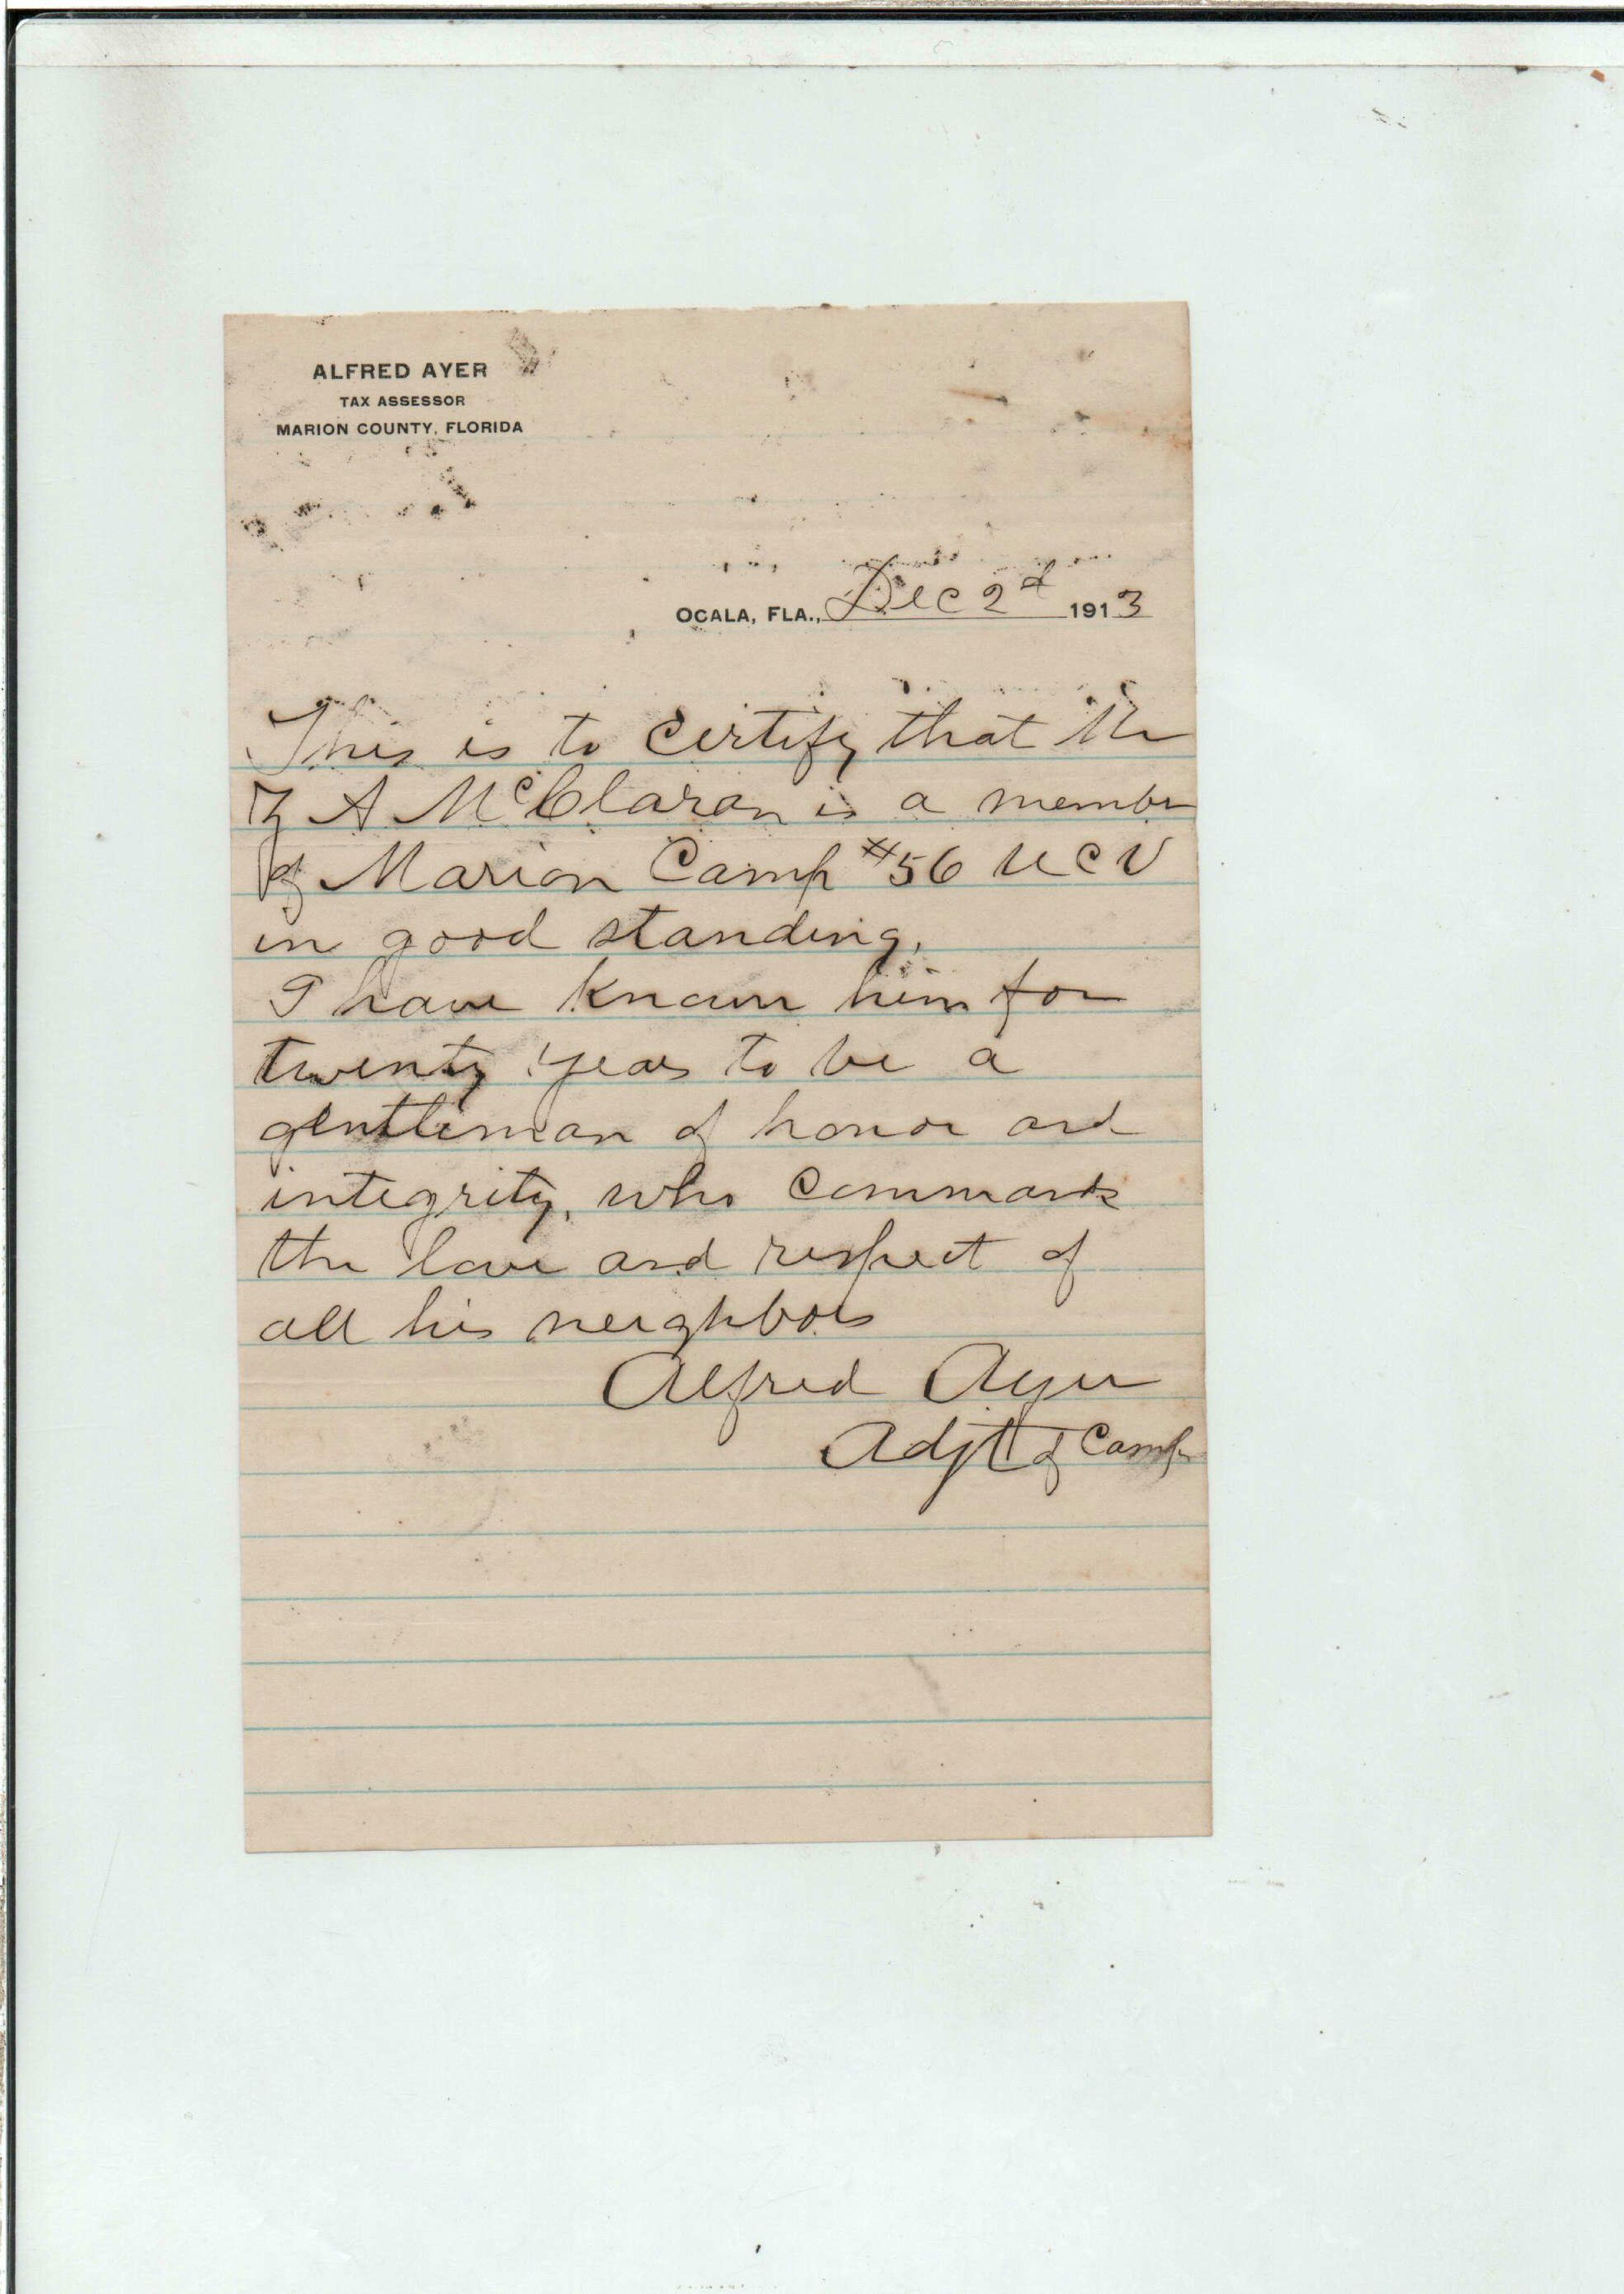 ALFRED AYER
TAX ASSESSOR
MARION COUNTY, FLORIDA
OCALA, FLA., Dec 2d 1913
This is to certify that Mr
A McClaran is a member
of Marion Camp #56 UCV
in good standing.
I have known him for
twenty years to be a
gentleman of honor and
integrity, who commands
the love and respect of
all his neighbors
Alfred Ayer
Adjt of Camp